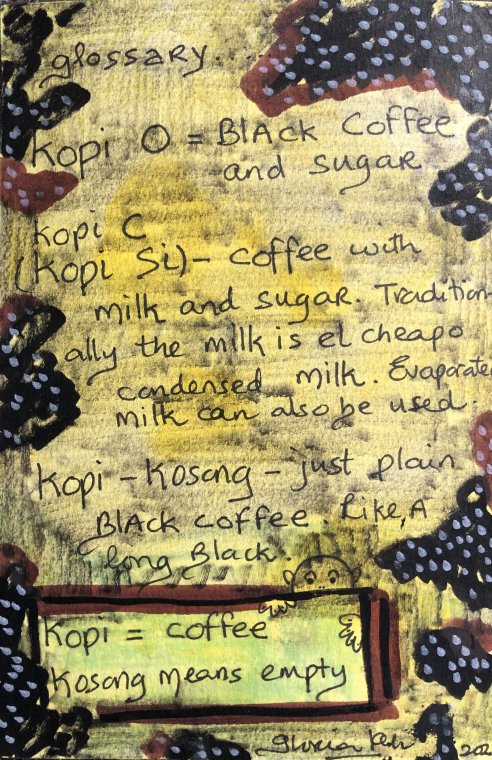 glossary....
Kopi O = Black Coffee
and sugar
Kopi C
(Kopi Si) - coffee with
milk and sugar. Tradition-
ally the milk is el cheapo
condensed milk. Evaporated
milk can also be used.
Kopi - Kosong - just plain
Black coffee. Like, A
long Black.
Kopi = coffee
Kosong means empty
Gloria Keh